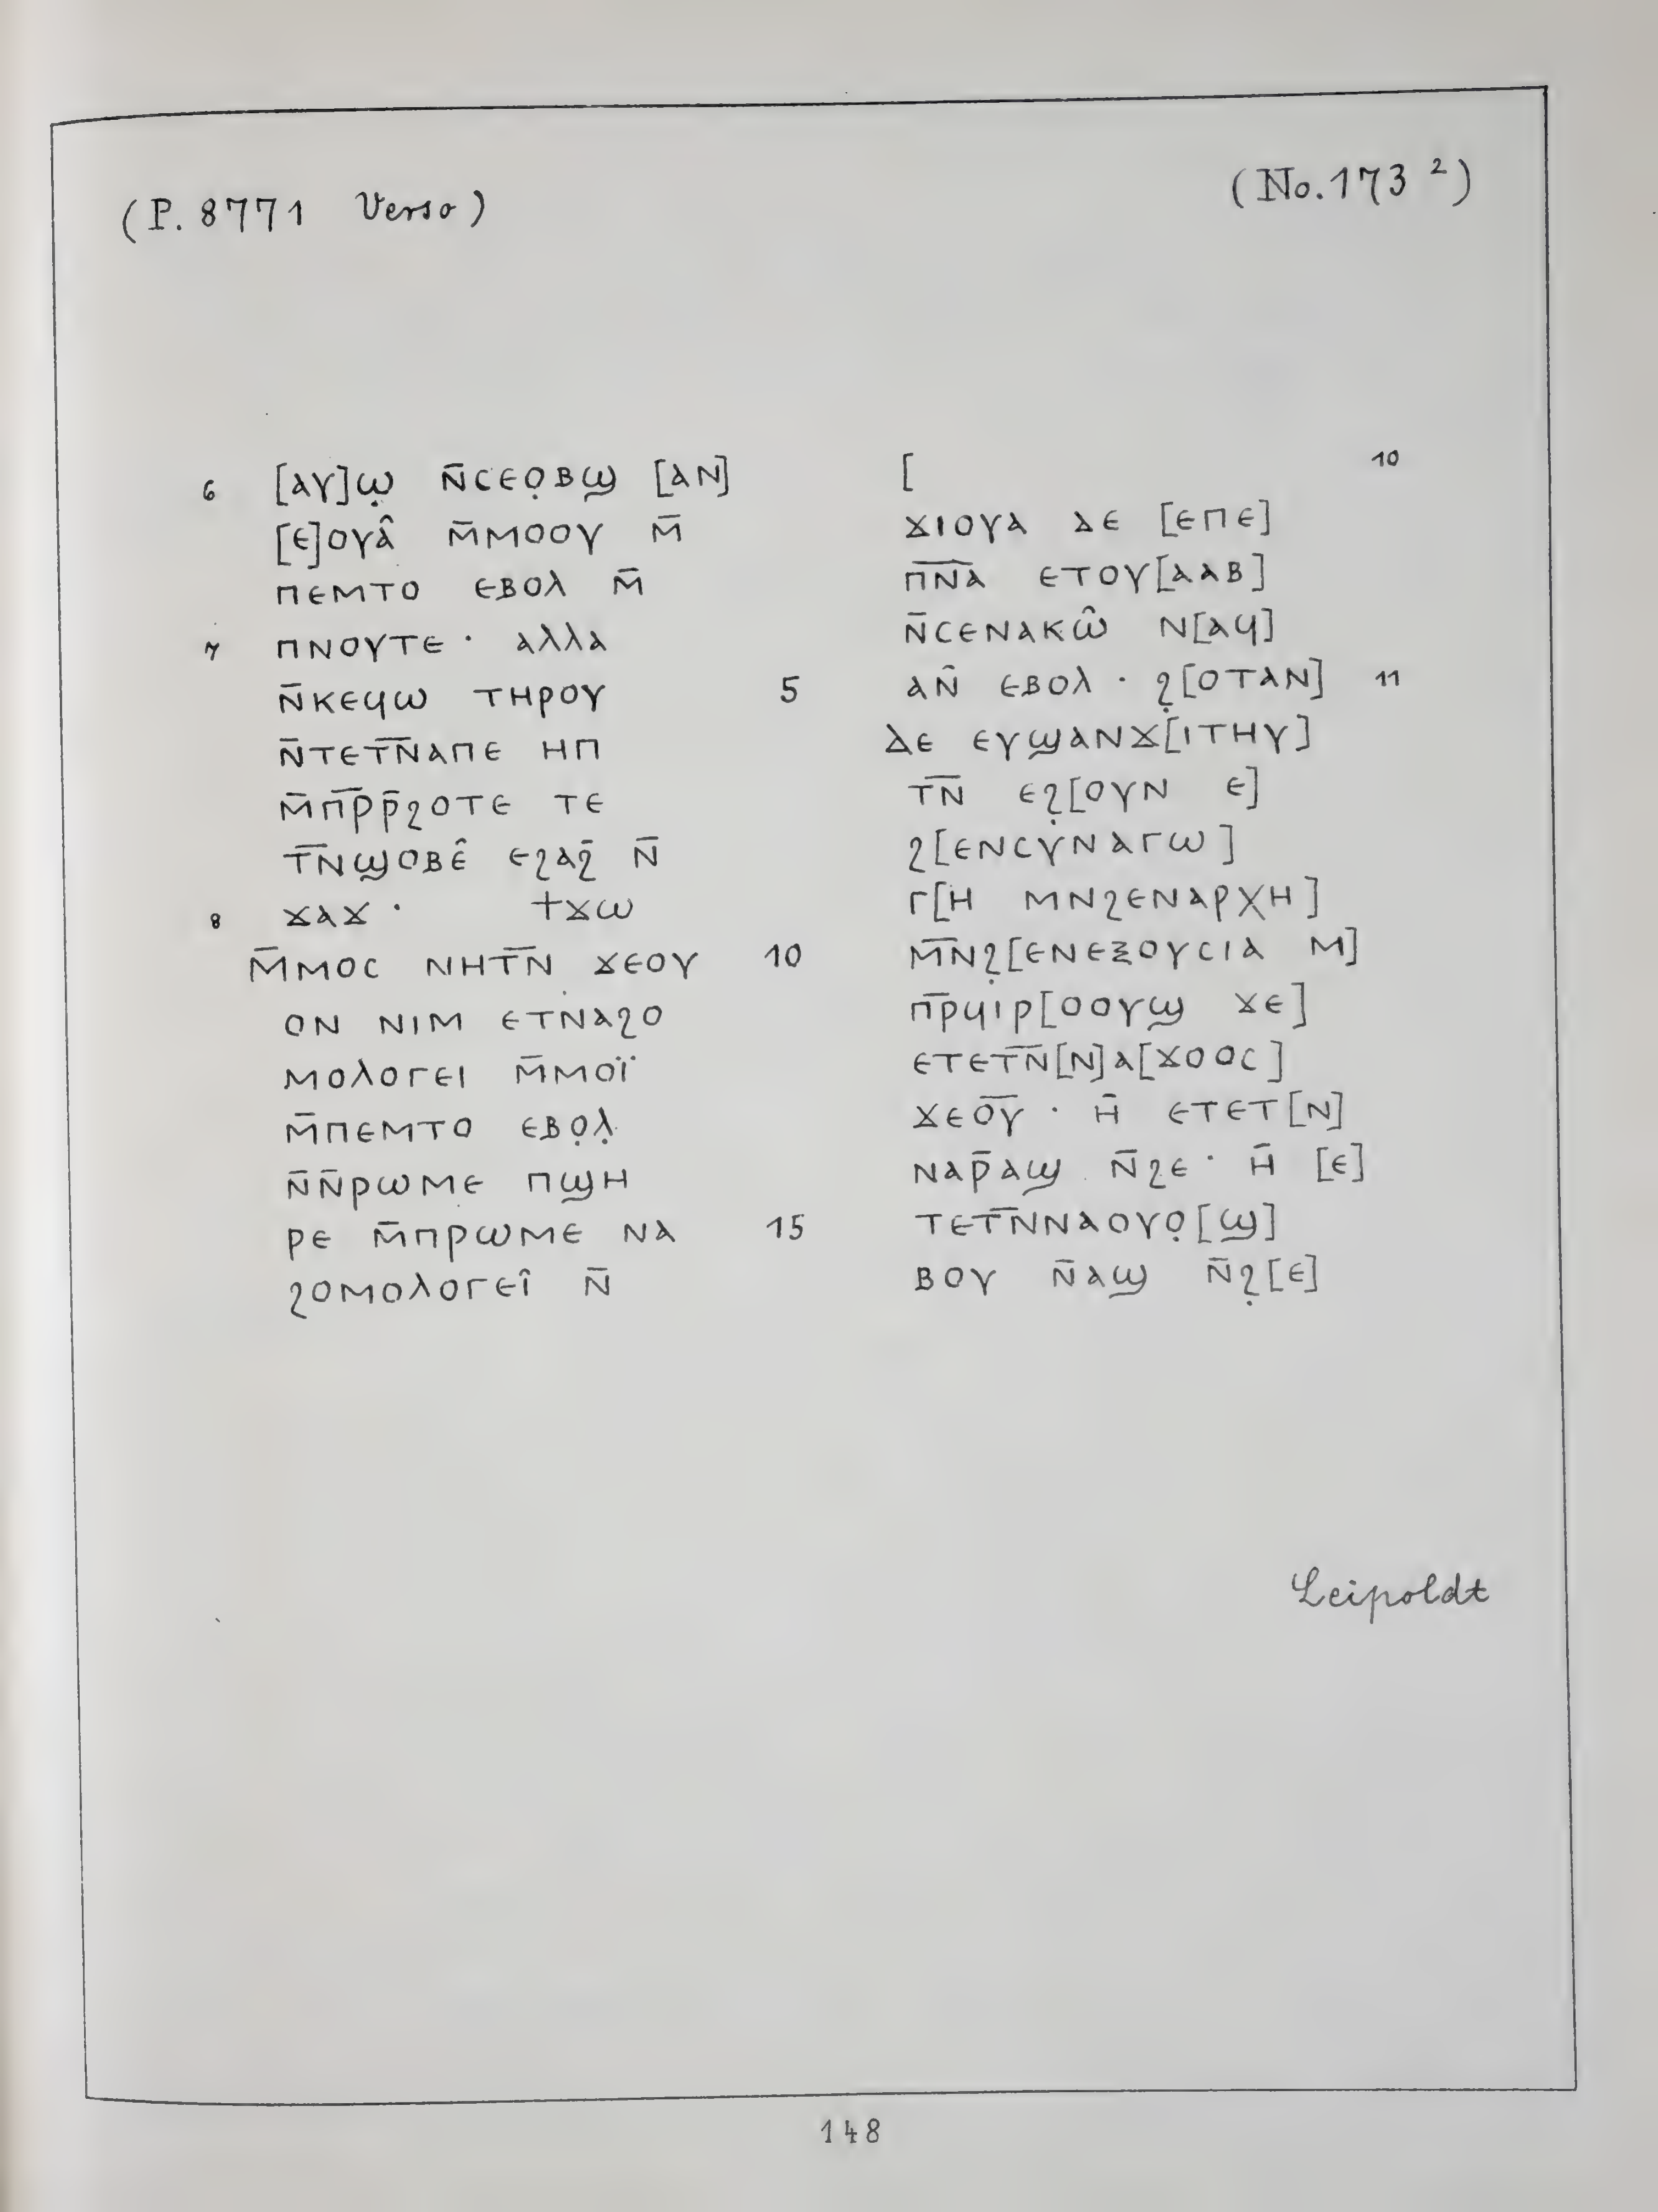 (P. 8771 Verso)
(No. 173 ²)
6 [ⲁⲩ]ⲱ̣ ⲛ̄ⲥⲉⲟ̣ⲃϣ [ⲁⲛ]
[ⲉ]ⲟⲩⲁ̂ ⲙ̄ⲙⲟⲟⲩ ⲙ̄
ⲡⲉⲙⲧⲟ ⲉⲃⲟⲗ ⲙ̄
7 ⲡⲛⲟⲩⲧⲉ · ⲁⲗⲗⲁ
ⲛ̄ⲕⲉϥⲱ ⲧⲏⲣⲟⲩ 5
ⲛ̄ⲧⲉⲧ̅ⲛ̅ⲁⲡⲉ ⲏⲡ
ⲙ̄ⲡ̅ⲣ̅ⲣ̄ϩⲟⲧⲉ ⲧⲉ
ⲧ̅ⲛ̅ϣⲟⲃⲉ̂ ⲉϩⲁϩ̄ ⲛ̄
8 ϫⲁϫ · ϯϫⲱ
ⲙ̄ⲙⲟⲥ ⲛⲏⲧ̅ⲛ̅ ϫⲉⲟⲩ 10
ⲟⲛ ⲛⲓⲙ ⲉⲧⲛⲁϩⲟ
ⲙⲟⲗⲟⲅⲉⲓ ⲙ̄ⲙⲟⲓ̈
ⲙ̄ⲡⲉⲙⲧⲟ ⲉⲃⲟ̣ⲗ̣
ⲛ̄ⲛ̄ⲣⲱⲙⲉ ⲡϣⲏ
ⲣⲉ ⲙ̄ⲡⲣⲱⲙⲉ ⲛⲁ 15
ϩⲟⲙⲟⲗⲟⲅⲉⲓ̂ ⲛ̄
[ 10
ϫⲓⲟⲩⲁ ⲇⲉ [ⲉⲡⲉ]
ⲡ̅ⲛ̅ⲁ̅ ⲉⲧⲟⲩ[ⲁⲁⲃ]
ⲛ̄ⲥⲉⲛⲁⲕⲱ̂ ⲛ[ⲁϥ]
ⲁⲛ̂ ⲉⲃⲟⲗ · ϩ̣[ⲟⲧⲁⲛ] 11
ⲇⲉ ⲉⲩϣⲁⲛϫ[ⲓⲧⲏⲩ]
ⲧ̅ⲛ̅ ⲉϩ̣[ⲟⲩⲛ ⲉ]
ϩ[ⲉⲛⲥⲩⲛⲁⲅⲱ]
ⲅ[ⲏ ⲙⲛϩⲉⲛⲁⲣⲭⲏ]
ⲙ̅ⲛ̅ϩ̣[ⲉⲛⲉⲝⲟⲩⲥⲓⲁ ⲙ]
ⲡ̅ⲣ̅ϥⲓⲣ[ⲟⲟⲩϣ ϫⲉ]
ⲉⲧⲉⲧ̅ⲛ̅[ⲛ]ⲁ[ϫⲟⲟⲥ]
ϫⲉⲟ̅ⲩ̅ · ⲏ̄ ⲉⲧⲉⲧ[ⲛ]
ⲛⲁⲣ̄ⲁϣ ⲛ̄ϩⲉ · ⲏ̄ [ⲉ]
ⲧⲉⲧ̅ⲛ̅ⲛⲁⲟⲩⲟ̣[ϣ]
ⲃⲟⲩ ⲛ̄ⲁϣ ⲛ̄ϩ̣[ⲉ]
Leipoldt
148